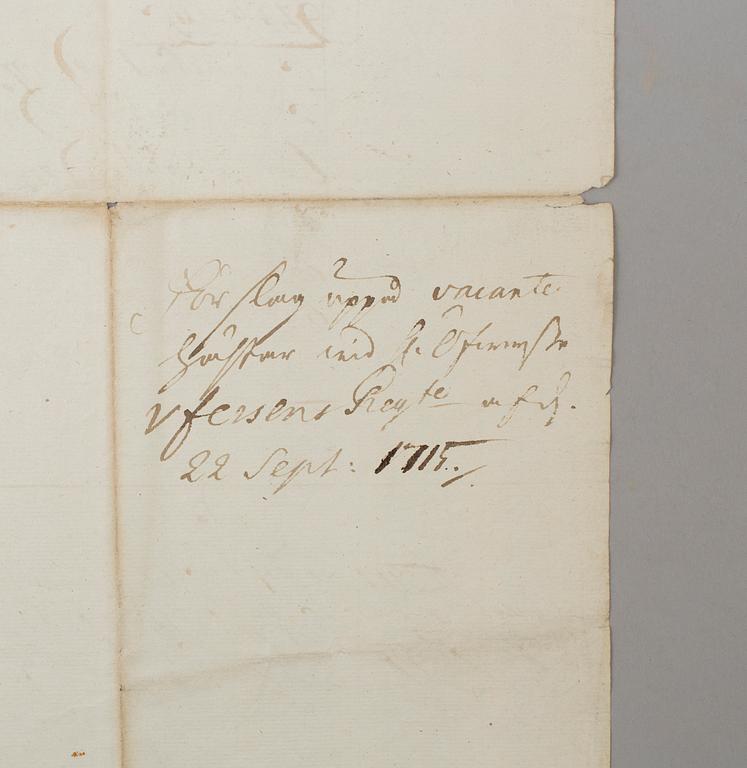 Förslag uppå vacante
hästar wid H. Öfwerste
v fersens Regte af d.
22 Sept: 1715.